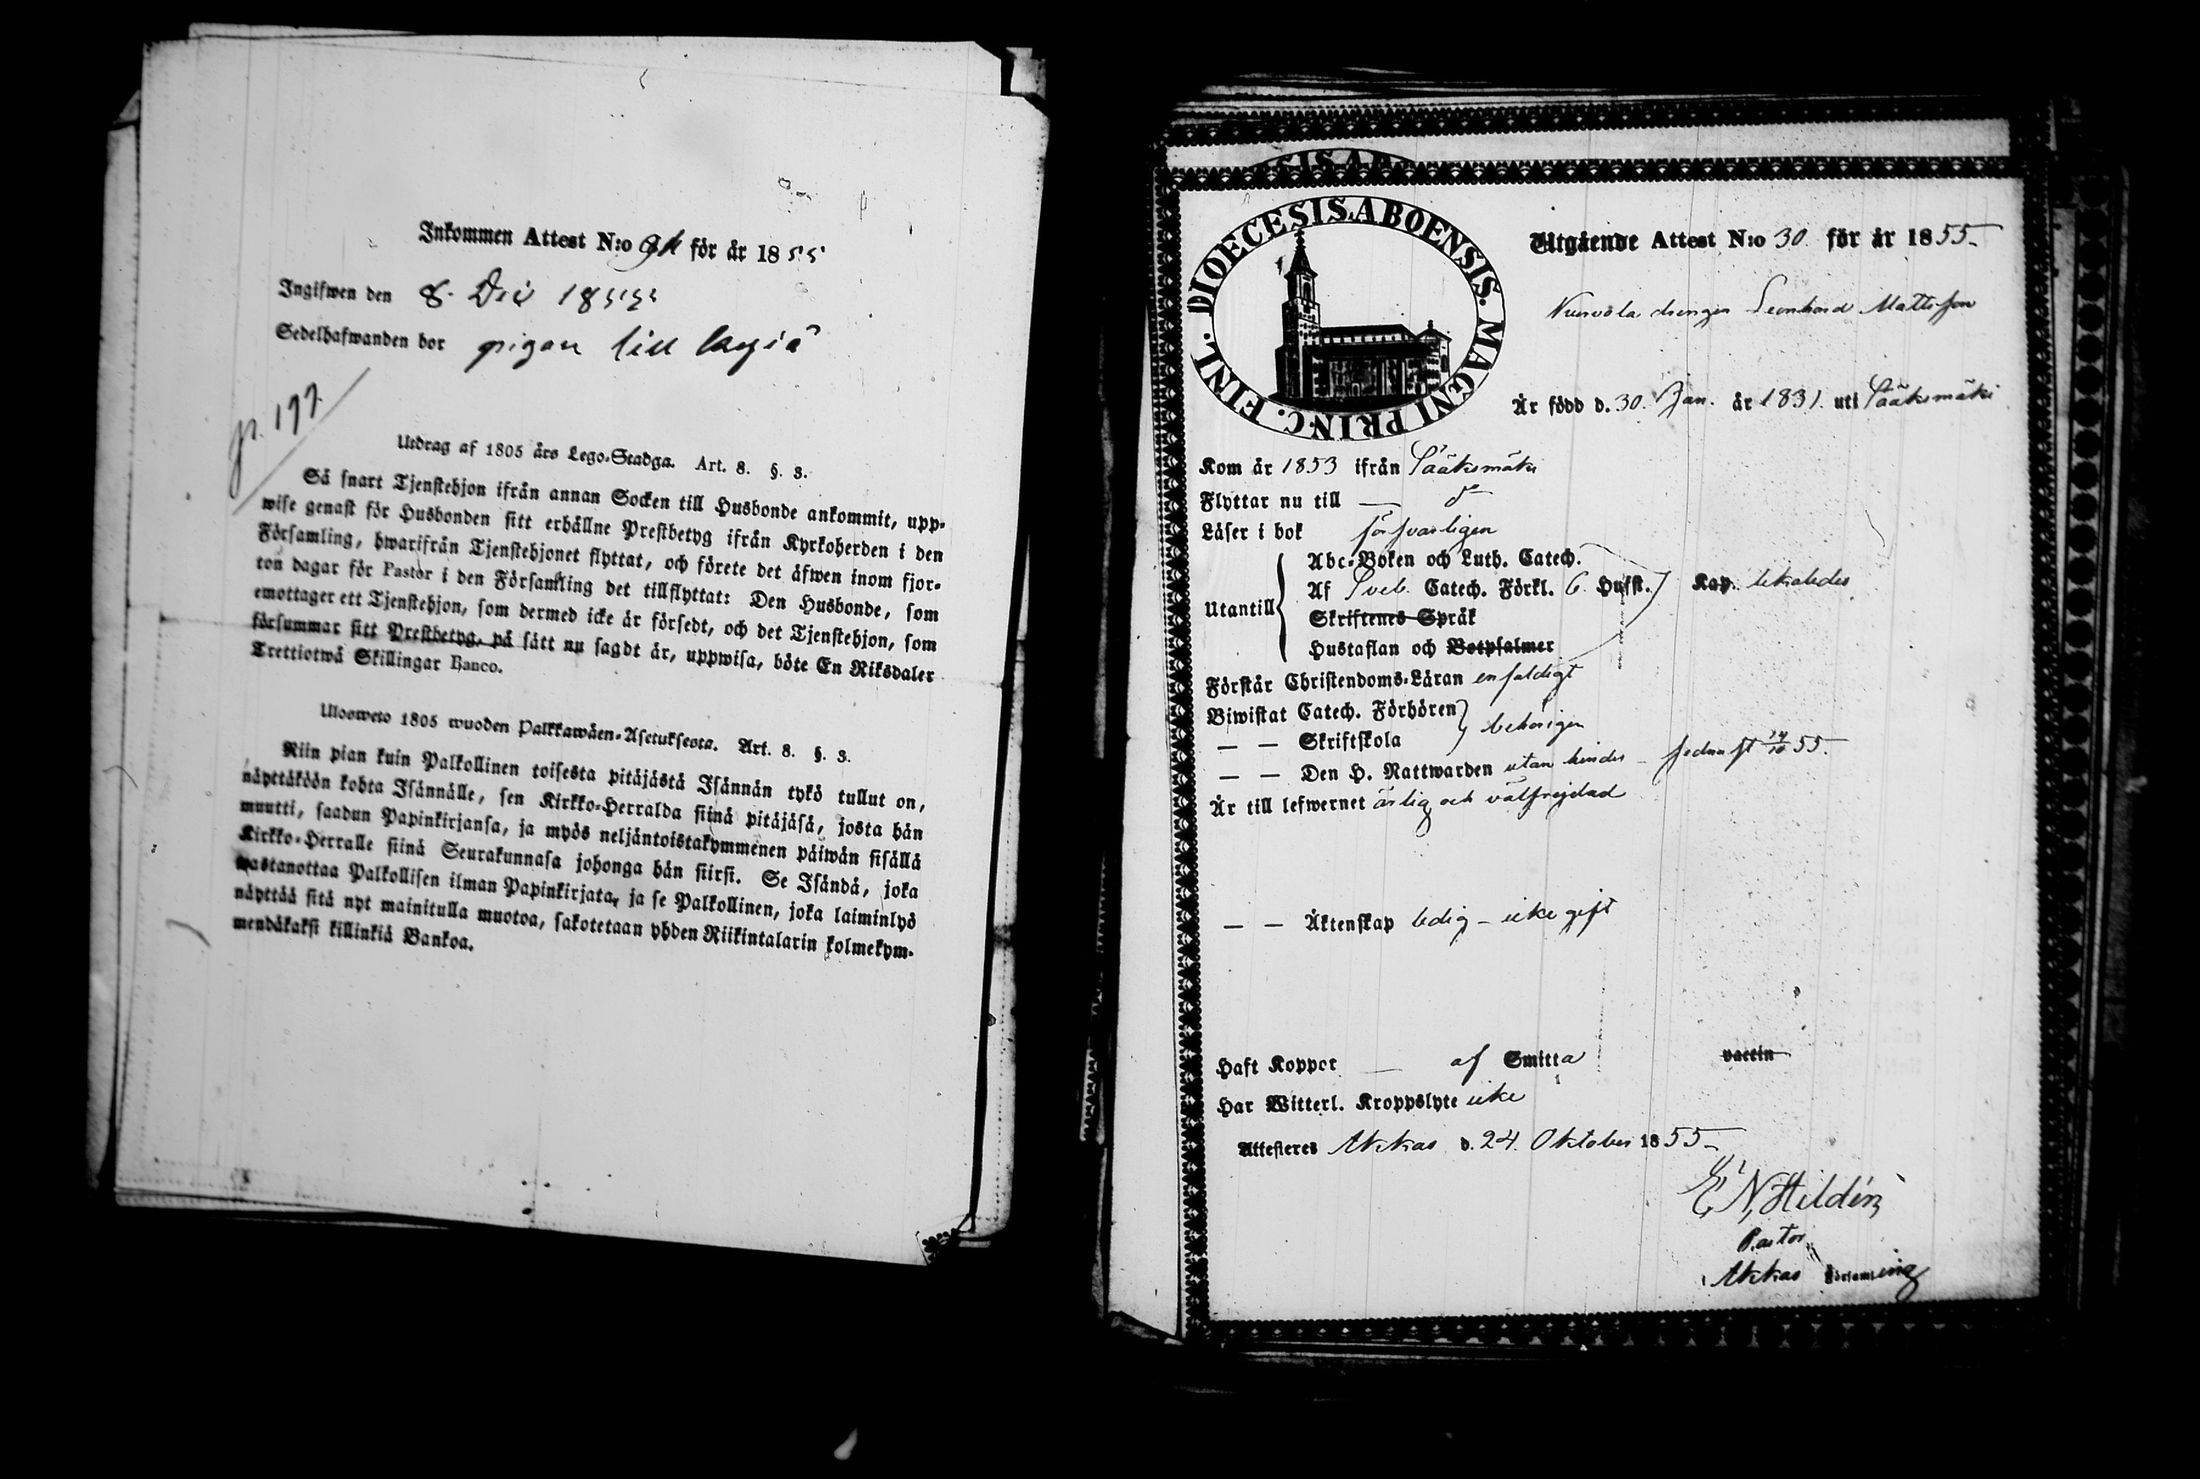 Inkommen Attest N:o för år 1855
Ingifwen den 8. Dec 1855
Sedelhafwanden bor pigan till
p. 197.
Utdrag af 1805 års Lego-Stadga. Art. 8. §. 3.
Så snart Tjenstehjon ifrån annan Socken till Husbonde ankommit, upp-
wise genast för Husbonden sitt erhållne Prestbetyg ifrån Kyrkoherden i den
Församling, hwarifrån Tjenstehjonet flyttat, och förete det äfwen inom fjor-
ton dagar för Pastor i den Församling det tillflyttat: Den Husbonde, som
emottager ett Tjenstehjon, som dermed icke är försedt, och det Tjenstehjon, som
försummar sitt Prestbetyg, på sätt nu sagdt är, uppwisa, böte En Riksdaler
Trettiotwå Skillingar Banco.
Ulosweto 1805 wuoden Palkkawäen-Asetuksesta. Art. 8. §. 3.
Niin pian kuin Palkollinen toisesta pitäjästä Isännän tykö tullut on,
näyttäköön kohta Isännälle, sen Kirkko-Herralda siinä pitäjäsä, josta hän
muutti, saadun Papinkirjansa, ja myös neljäntoistakymmenen päiwän sisällä
Kirkko-Herralle siinä Seurakunnasa johonga hän siirsi. Se Isändä, joka
wastanottaa Palkollisen ilman Papinkirjata, ja se Palkollinen, joka laiminlyö
näyttää sitä nyt mainitulla muotoa, sakotetaan yhden Riikintalarin kolmekym-
mendäkaksi killinkiä Bankoa.
DIOECESIS. ABOENSIS. MAGNI PRINC. FINL.
Utgående Attest N:o 30 för år 1855
drengen Leonhard Mattsson
Är född d. 30. Jan. år 1831. uti Sääksmäki
Kom år 1853 ifrån Sääksmäki
Flyttar nu till — d:o
Läser i bok försvarligen
Abc-Boken och Luth. Catech.
Utantill Af Sveb. Catech. Förkl. 6 Hufst. Kap.
Skriftenes Språk
Hustaflan och Botpsalmer
Förstår Christendoms-Läran enfaldigt
Biwistat Catech. Förhören behörigen
— — Skriftskola
— — Den H. Nattwarden utan hinder sednast 14/10 55.
Är till lefwernet ärlig och välfrejdad
— — Äktenskap ledig – icke gift
Haft Koppor — af Smitta vaccin
Har Witterl. Kroppslyte icke
Attesteres Akkas d. 24. Oktober 1855
E N Hildén
Pastor
Akkas Församling